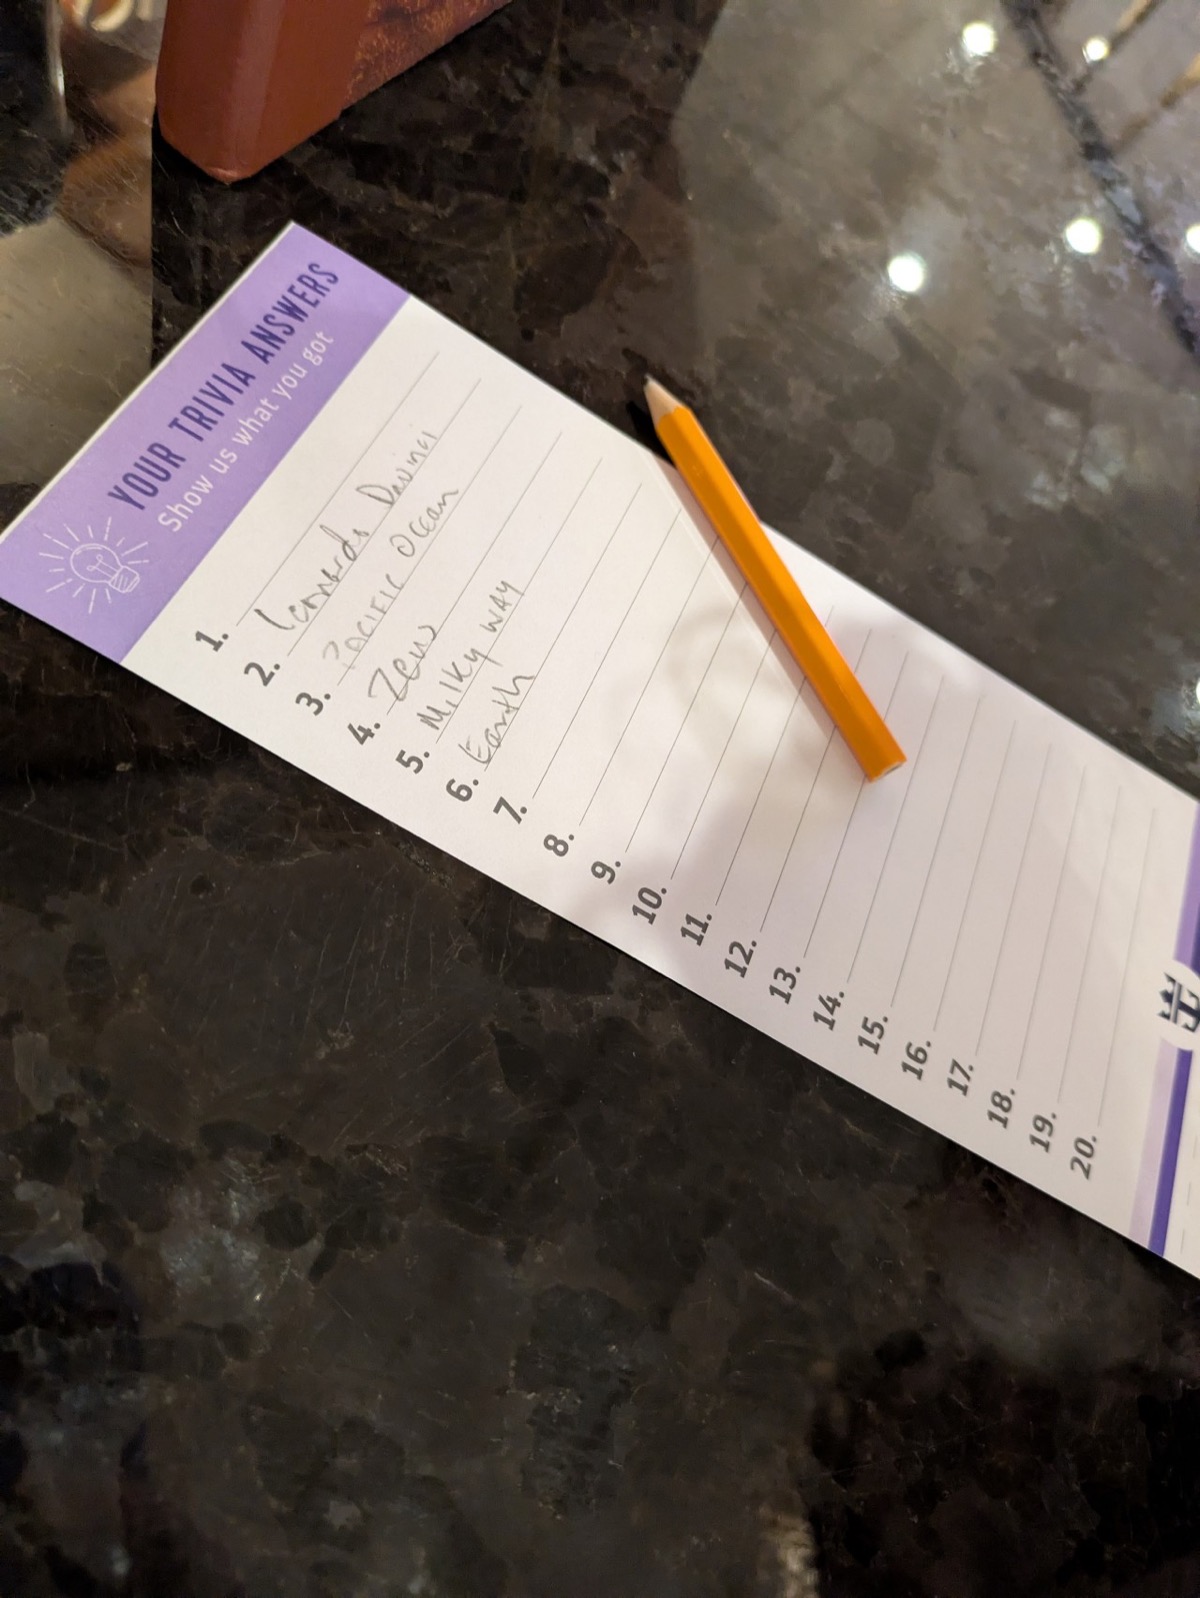 YOUR TRIVIA ANSWERS
Show us what you got
1.
2. Leonardo Davinci
3. Pacific Ocean
4. Zeus
5. Milky WAY
6. Earth
7.
8.
9.
10.
11.
12.
13.
14.
15.
16.
17.
18.
19.
20.